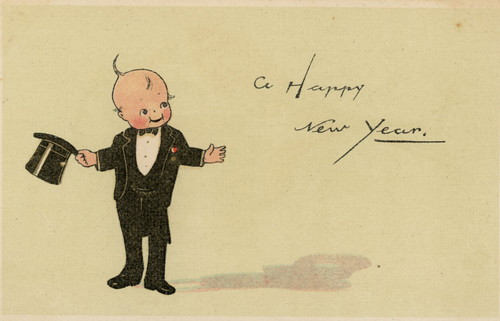 a Happy
New Year.